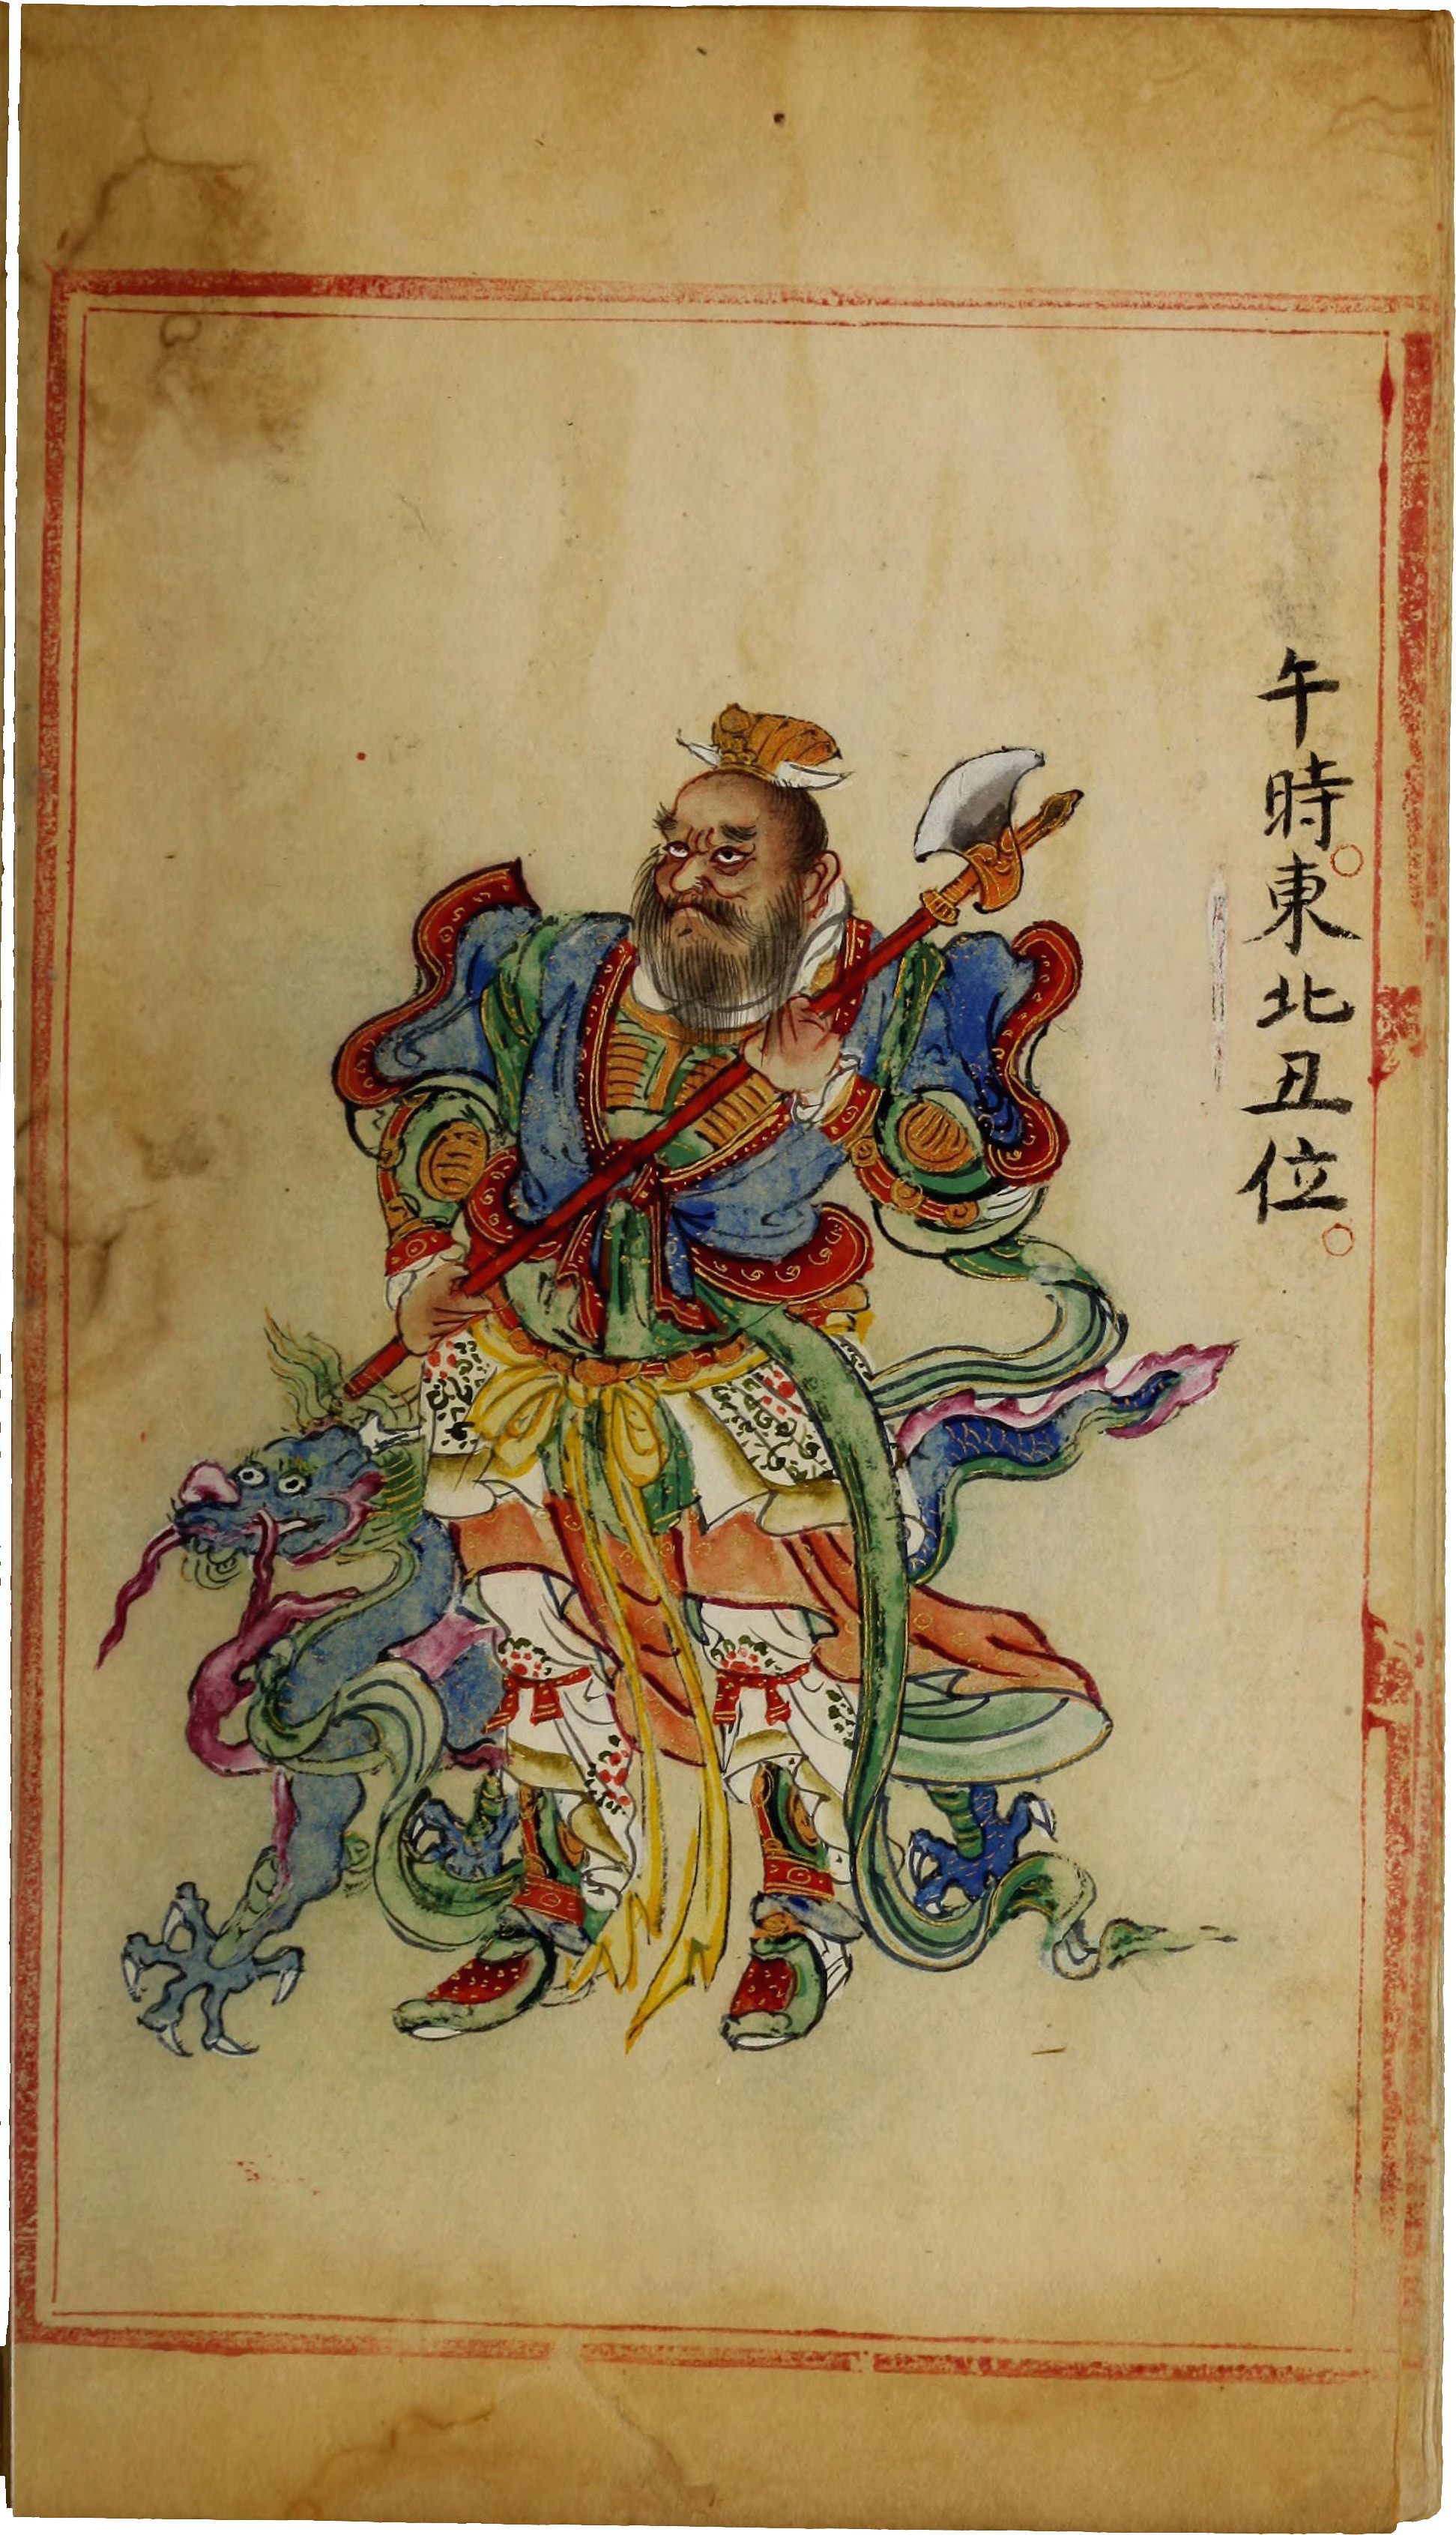 午時東北丑位